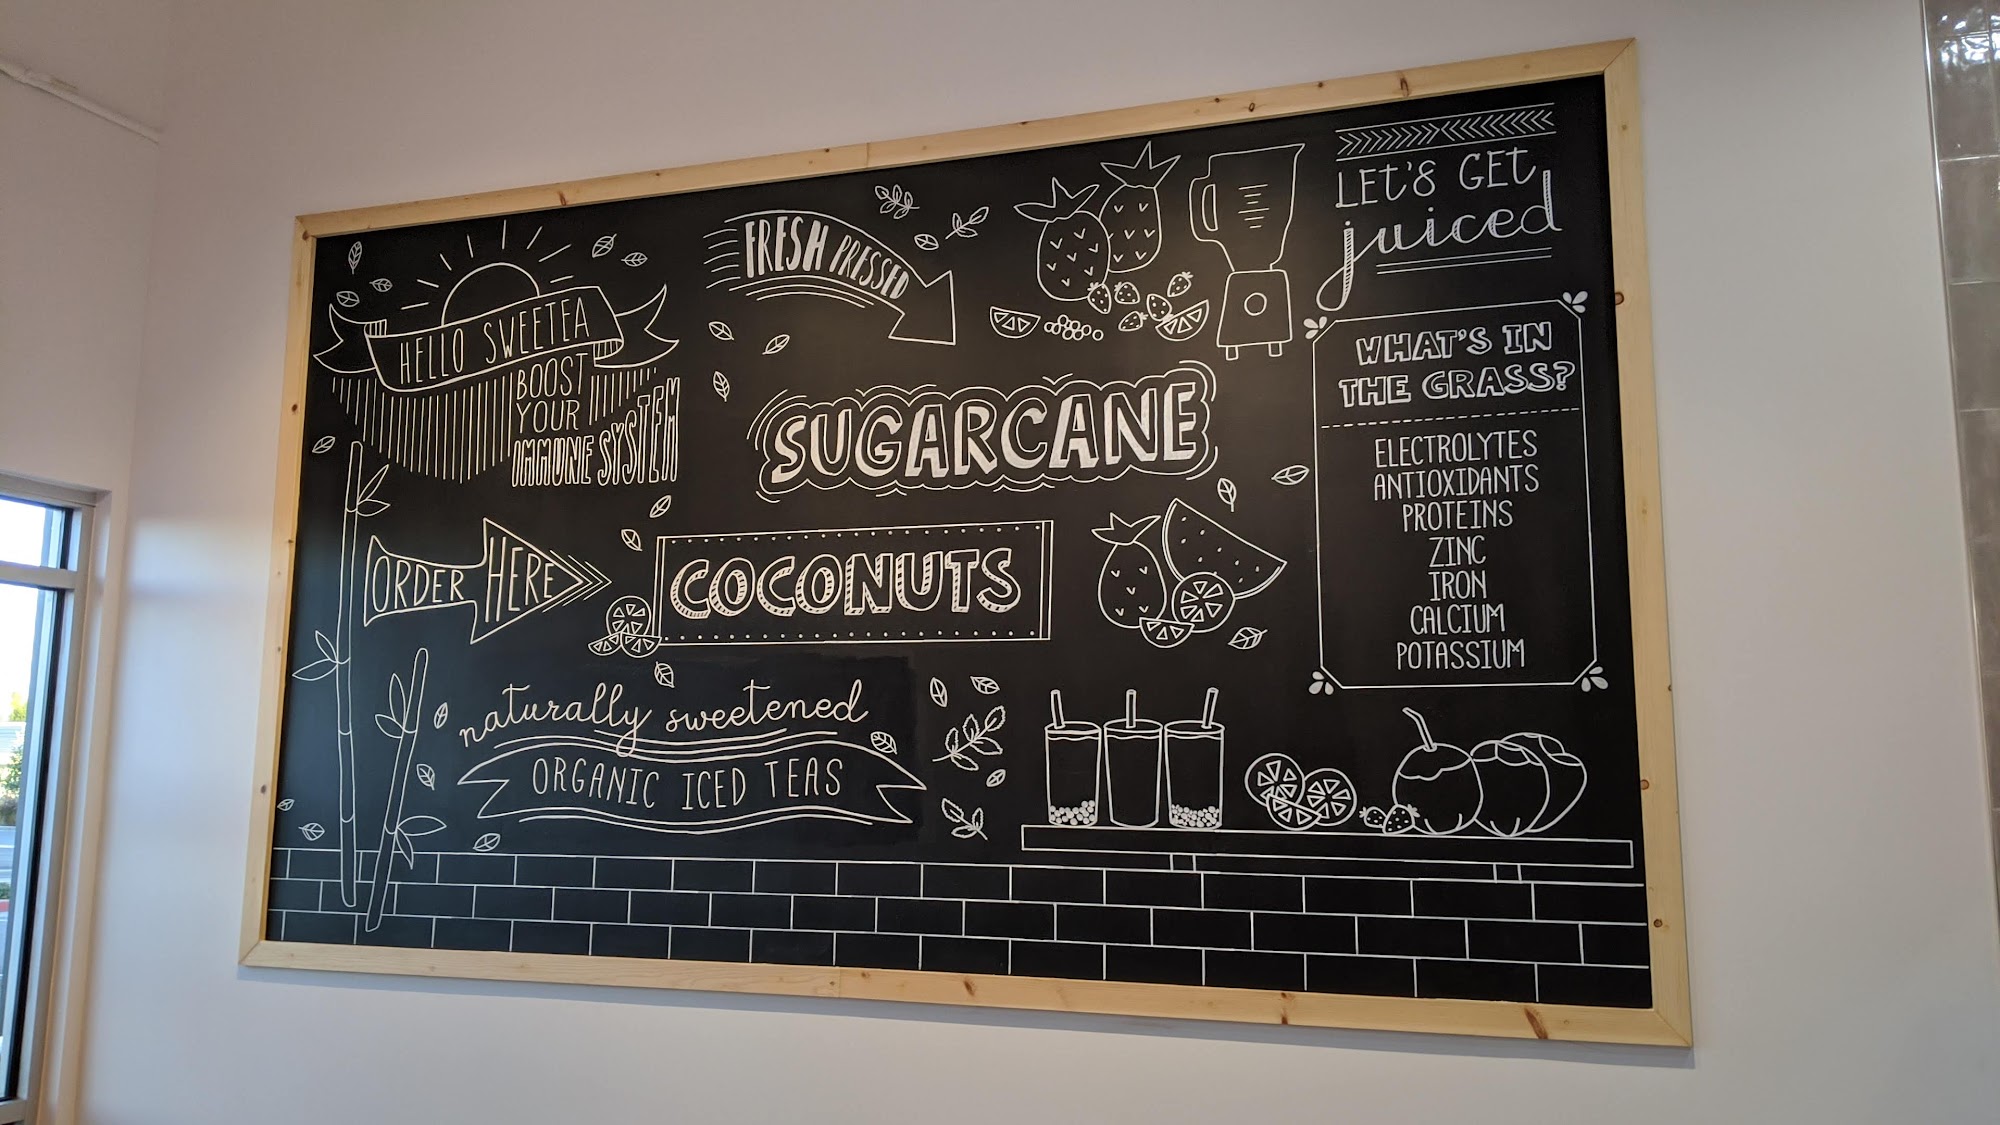 HELLO SWEETEA
BOOST
YOUR
IMMUNE SYSTEM
FRESH PRESSED
SUGARCANE
LET'S GET
juiced
WHAT'S IN
THE GRASS?
ELECTROLYTES
ANTIOXIDANTS
PROTEINS
ZINC
IRON
CALCIUM
POTASSIUM
ORDER HERE
COCONUTS
naturally sweetened
ORGANIC ICED TEAS